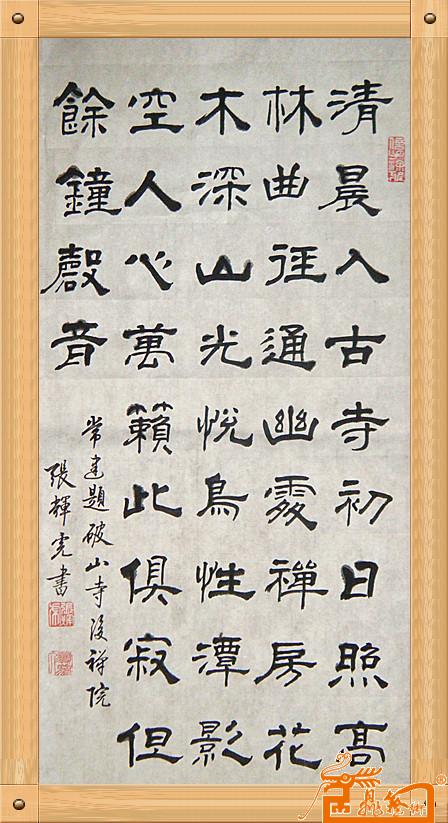 清晨入古寺初日照高
林曲徑通幽處禪房花
木深山光悅鳥性潭影
空人心萬籟此俱寂但
餘鐘磬音
常建題破山寺後禪院
張輝 書